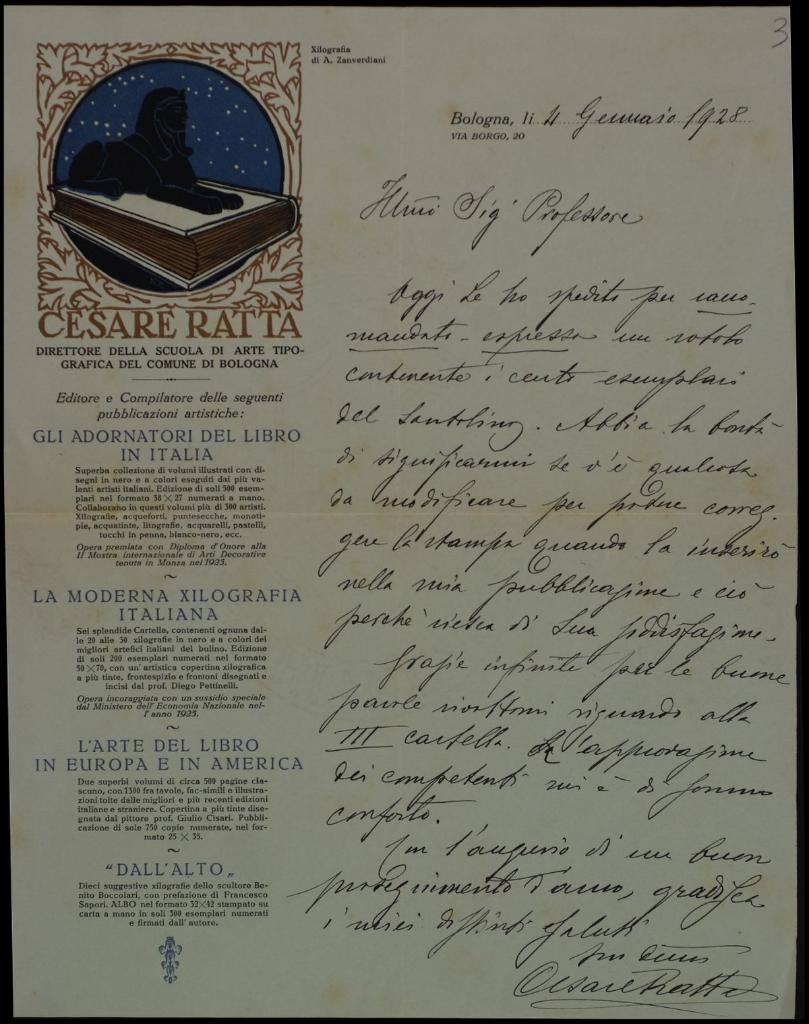 3
Xilografia
di A. Zanverdiani
CESARE RATTA
DIRETTORE DELLA SCUOLA DI ARTE TIPO-
GRAFICA DEL COMUNE DI BOLOGNA
Editore e Compilatore delle seguenti
pubblicazioni artistiche:
GLI ADORNATORI DEL LIBRO
IN ITALIA
Superba collezione di volumi illustrati con di-
segni in nero e a colori eseguiti dai più va-
lenti artisti italiani. Edizione di soli 500 esem-
plari nel formato 38 × 27 numerati a mano.
Collaborano in questi volumi più di 300 artisti.
Xilografie, acqueforti, puntesecche, monoti-
pie, acquatinte, litografie, acquarelli, pastelli,
tocchi in penna, bianco-nero, ecc.
Opera premiata con Diploma d'Onore alla
II Mostra internazionale di Arti Decorative
tenuta in Monza nel 1925.
~
LA MODERNA XILOGRAFIA
ITALIANA
Sei splendide Cartelle, contenenti ognuna dal-
le 20 alle 30 xilografie in nero e a colori dei
migliori artefici italiani del bulino. Edizione
di soli 200 esemplari numerati nel formato
50 × 70, con un'artistica copertina xilografica
a più tinte, frontespizio e frontoni disegnati e
incisi dal prof. Diego Pettinelli.
Opera incoraggiata con un sussidio speciale
dal Ministero dell'Economia Nazionale nel-
l'anno 1925.
~
L'ARTE DEL LIBRO
IN EUROPA E IN AMERICA
Due superbi volumi di circa 500 pagine cia-
scuno, con 1300 fra tavole, fac-simili e illustra-
zioni tolte dalle migliori e più recenti edizioni
italiane e straniere. Copertina a più tinte dise-
gnata dal pittore prof. Giulio Cisari. Pubbli-
cazione di sole 750 copie numerate, nel for-
mato 25 × 35.
~
"DALL'ALTO„
Dieci suggestive xilografie dello scultore Be-
nito Boccolari, con prefazione di Francesco
Sapori. ALBO nel formato 32×42 stampato su
carta a mano in soli 300 esemplari numerati
e firmati dall'autore.
Bologna, li 4 Gennaio 1928
VIA BORGO, 20
Illmo Sigr Professore
Oggi Le ho spedito per racco-
mandato - espresso un rotolo
contenente i cento esemplari
del Santolino. Abbia la bontà
di significarmi se v'è qualcosa
da modificare per potere correg-
gere la stampa quando la inserirò
nella mia pubblicazione e ciò
perchè riesca di Sua soddisfazione.
Grazie infinite per le buone
parole riguardo alla
III cartella. L'approvazione
dei competenti mi è di sommo
conforto.
Con l'augurio di un buon
proseguimento d'anno, gradisca
i miei distinti saluti
Cesare Ratta